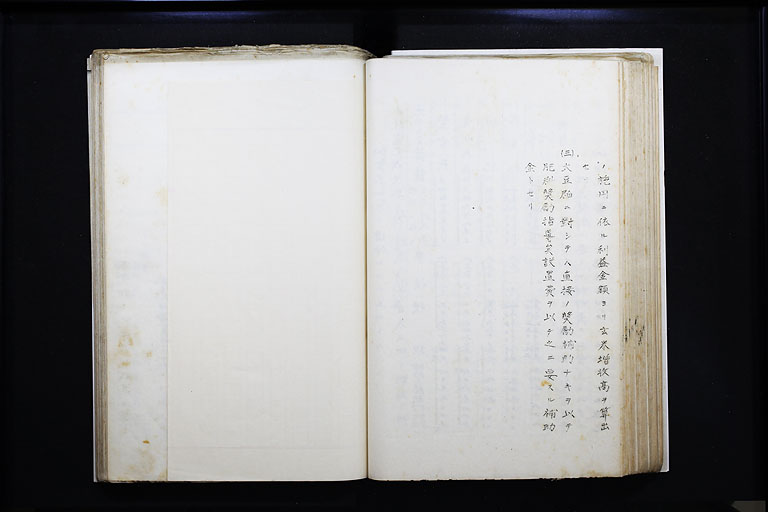 ノ施用ニ依ル利益金額ヨリ玄米増收高ヲ算出
セ
(三)大豆粕ニ對シテハ直接ノ奬勵補助ナキヲ以テ
肥料奬勵指導員設置費ヲ以テ之ニ要スル補助
金トセリ